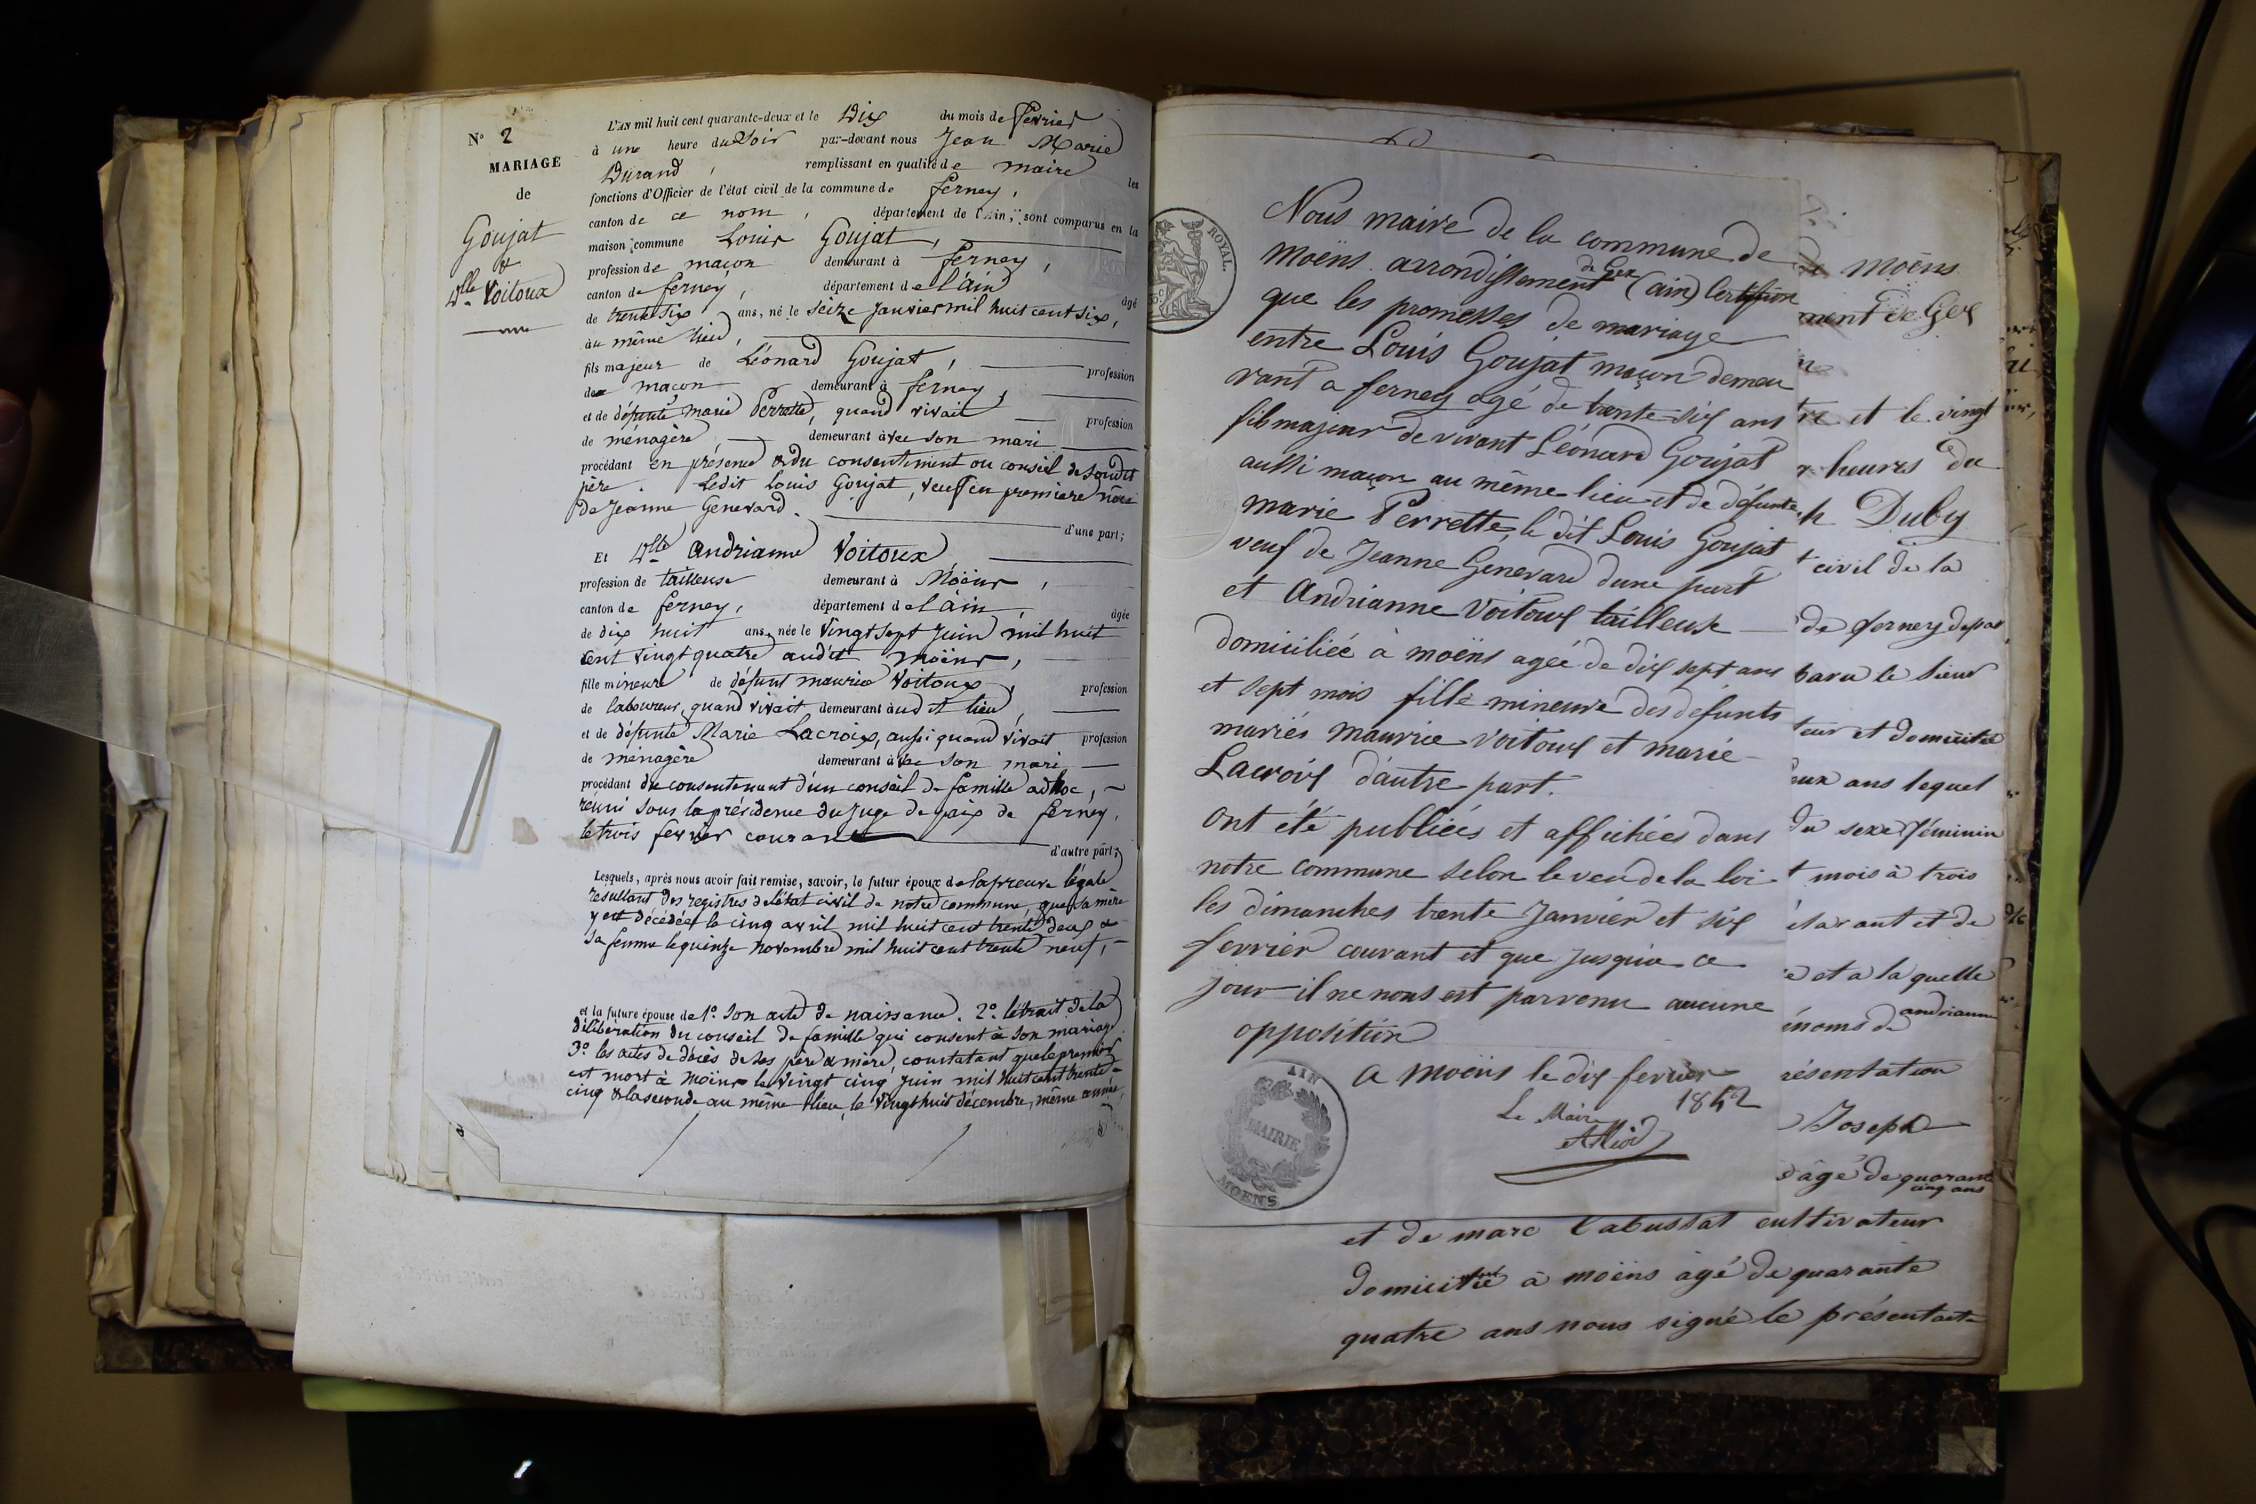 N° 2
MARIAGE
de
Goujat
&
Dlle Voitoux
L'AN mil huit cent quarante-deux et le Dix du mois de février
à une heure du soir par-devant nous Jean Marie
Durand, remplissant en qualité de maire les
fonctions d'Officier de l'état civil de la commune de ferney,
canton de ce nom, département de l'Ain, sont comparus en la
maison commune Louis Goujat,
profession de maçon demeurant à ferney,
canton de ferney, département de l'ain âgé
de trente six ans, né le seize Janvier mil huit cent six,
au même lieu,
fils majeur de Léonard Goujat, profession
de maçon demeurant à ferney,
et de défunte marie Perrette, quand vivait profession
de ménagère, demeurant avec son mari
procédant en présence & du consentement ou conseil de soudit
père. Ledit Louis Goujat, veuf en premiere nôce
de Jeanne Genevard. d'une part;
Et Dlle andrianne Voitoux
profession de tailleuse demeurant à Moëns,
canton de ferney, département de l'ain, âgée
de dix huit ans, née le vingt sept Juin mil huit
cent vingt quatre audit moëns,
fille mineure de défunt maurice Voitoux, profession
de laboureur, quand vivait demeurant audit lieu,
et de défunte Marie Lacroix, aussi quand vivait profession
de ménagère demeurant avec son mari
procédant du consentement d'un conseil de famille ad hoc,
réuni sous la présidence du Juge de paix de ferney,
le trois fevrier courant d'autre part;
Lesquels, après nous avoir fait remise, savoir, le futur époux de la preuve légale
resultant des registres de l'état civil de notre commune, que sa mère
y est décédée le cinq avril mil huit cent trente deux &
sa femme le quinze novembre mil huit cent trente neuf,
et la future épouse de 1° son acte de naissance. 2° l'extrait de la
délibération du conseil de famille qui consent à son mariage
3° les actes de décès de ses père & mère, constatant que le premier
est mort à Moëns le vingt cinq juin mil huit cent trente
cinq & la seconde au même lieu, le vingt huit décembre, même année,
ROYAL.
Nous maire de la commune de
Moëns arrondissement de Gex (ain) Certifions
que les promesses de mariage
entre Louis Goujat maçon demeu
rant a ferney agé de trente six ans
fils majeur de vivant Léonard Goujat
aussi maçon au même lieu et de défunte
marie Perrette, le dit Louis Goujat
veuf de Jeanne Genevard dune part
et Andrianne Voitoux tailleuse
domiciliée à moëns agée de dix sept ans
et sept mois fille mineure des defunts
mariés maurice voitoux et marie
Lacroix d'autre part.
Ont été publiées et affichées dans
notre commune selon le veu de la loi
les dimanches trente Janvier et six
fevrier courant et que jusqu'a ce
jour il ne nous est parvenu aucune
opposition
A moëns le dix fevrier
1842
Le Maire
AIN
MAIRIE
MOENS
de moëns
ment de Gex
re et le vingt
heures du
h Duby
t civil de la
de ferney depar
paru le sieur
teur et domicilié
eux ans lequel
du sexe féminin
t mois à trois
clarant et de
e et a la quelle
énoms de andrianne
résentation
Joseph
âgé de quarante
cinq ans
et de marc Cabussat cultivateur
domicilié à moëns âgé de quarante
quatre ans nous signé le présent acte